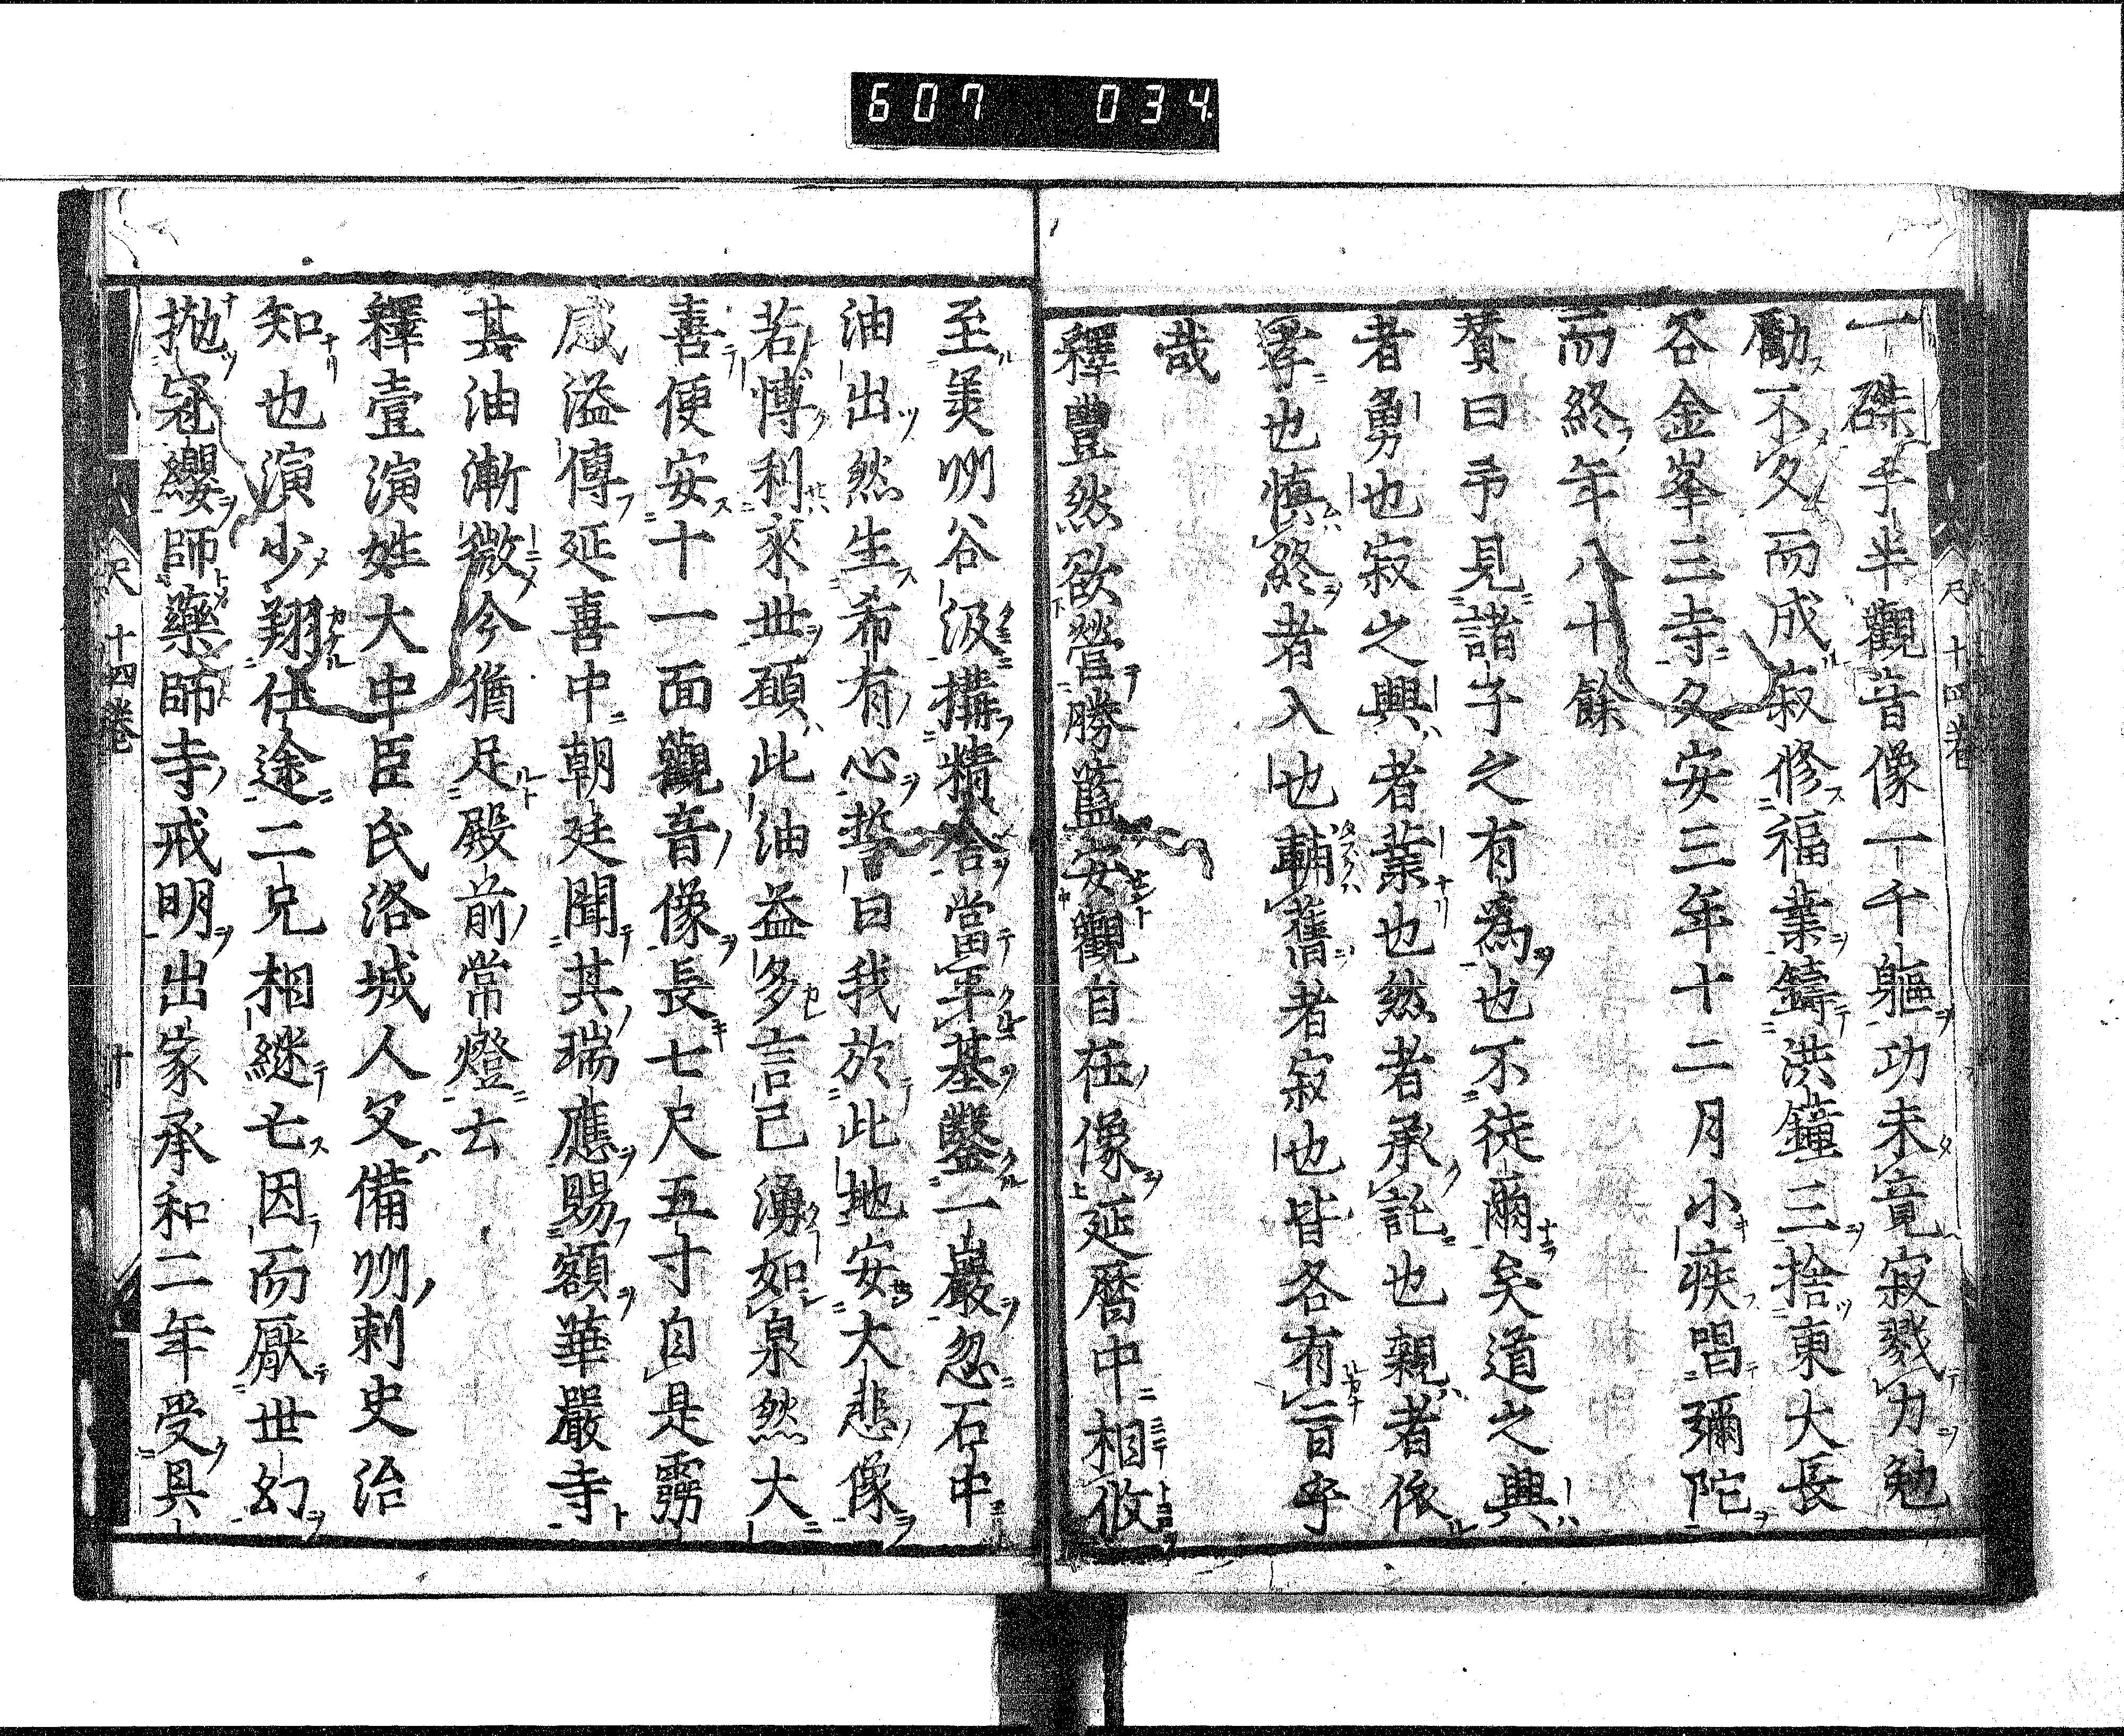 607 034
一磔手半觀音像一千軀功未竟寂戮力勉
勵不久而成寂修福業鑄洪鐘三捨東大長
谷金峯三寺久安三年十二月小疾唱彌陀
而終年八十餘
賛曰予見諸子之有爲也不徒爾矣道之興
者勇也寂之興者業也然者承託也親者依
孝也慎終者入也輔舊者寂也皆各有旨乎
哉
釋豐然欲營勝藍安觀自在像延曆中相攸
至美州谷汲搆精舍當平基鑿一巖忽石中
油出然生希有心誓曰我於此地安大悲像
若博利來世願此油益多言已湧如泉然大
喜便安十一面觀音像長七尺五寸自是靈
感溢傳延喜中朝廷聞其瑞應賜額華嚴寺
其油漸微今猶足殿前常燈云
釋壹演姓大中臣氏洛城人父備州刺史治
知也演少翔仕途二兄相繼亡因而厭世幻
拋冠纓師藥師寺戒明出家承和二年受具
尺 十四卷 十